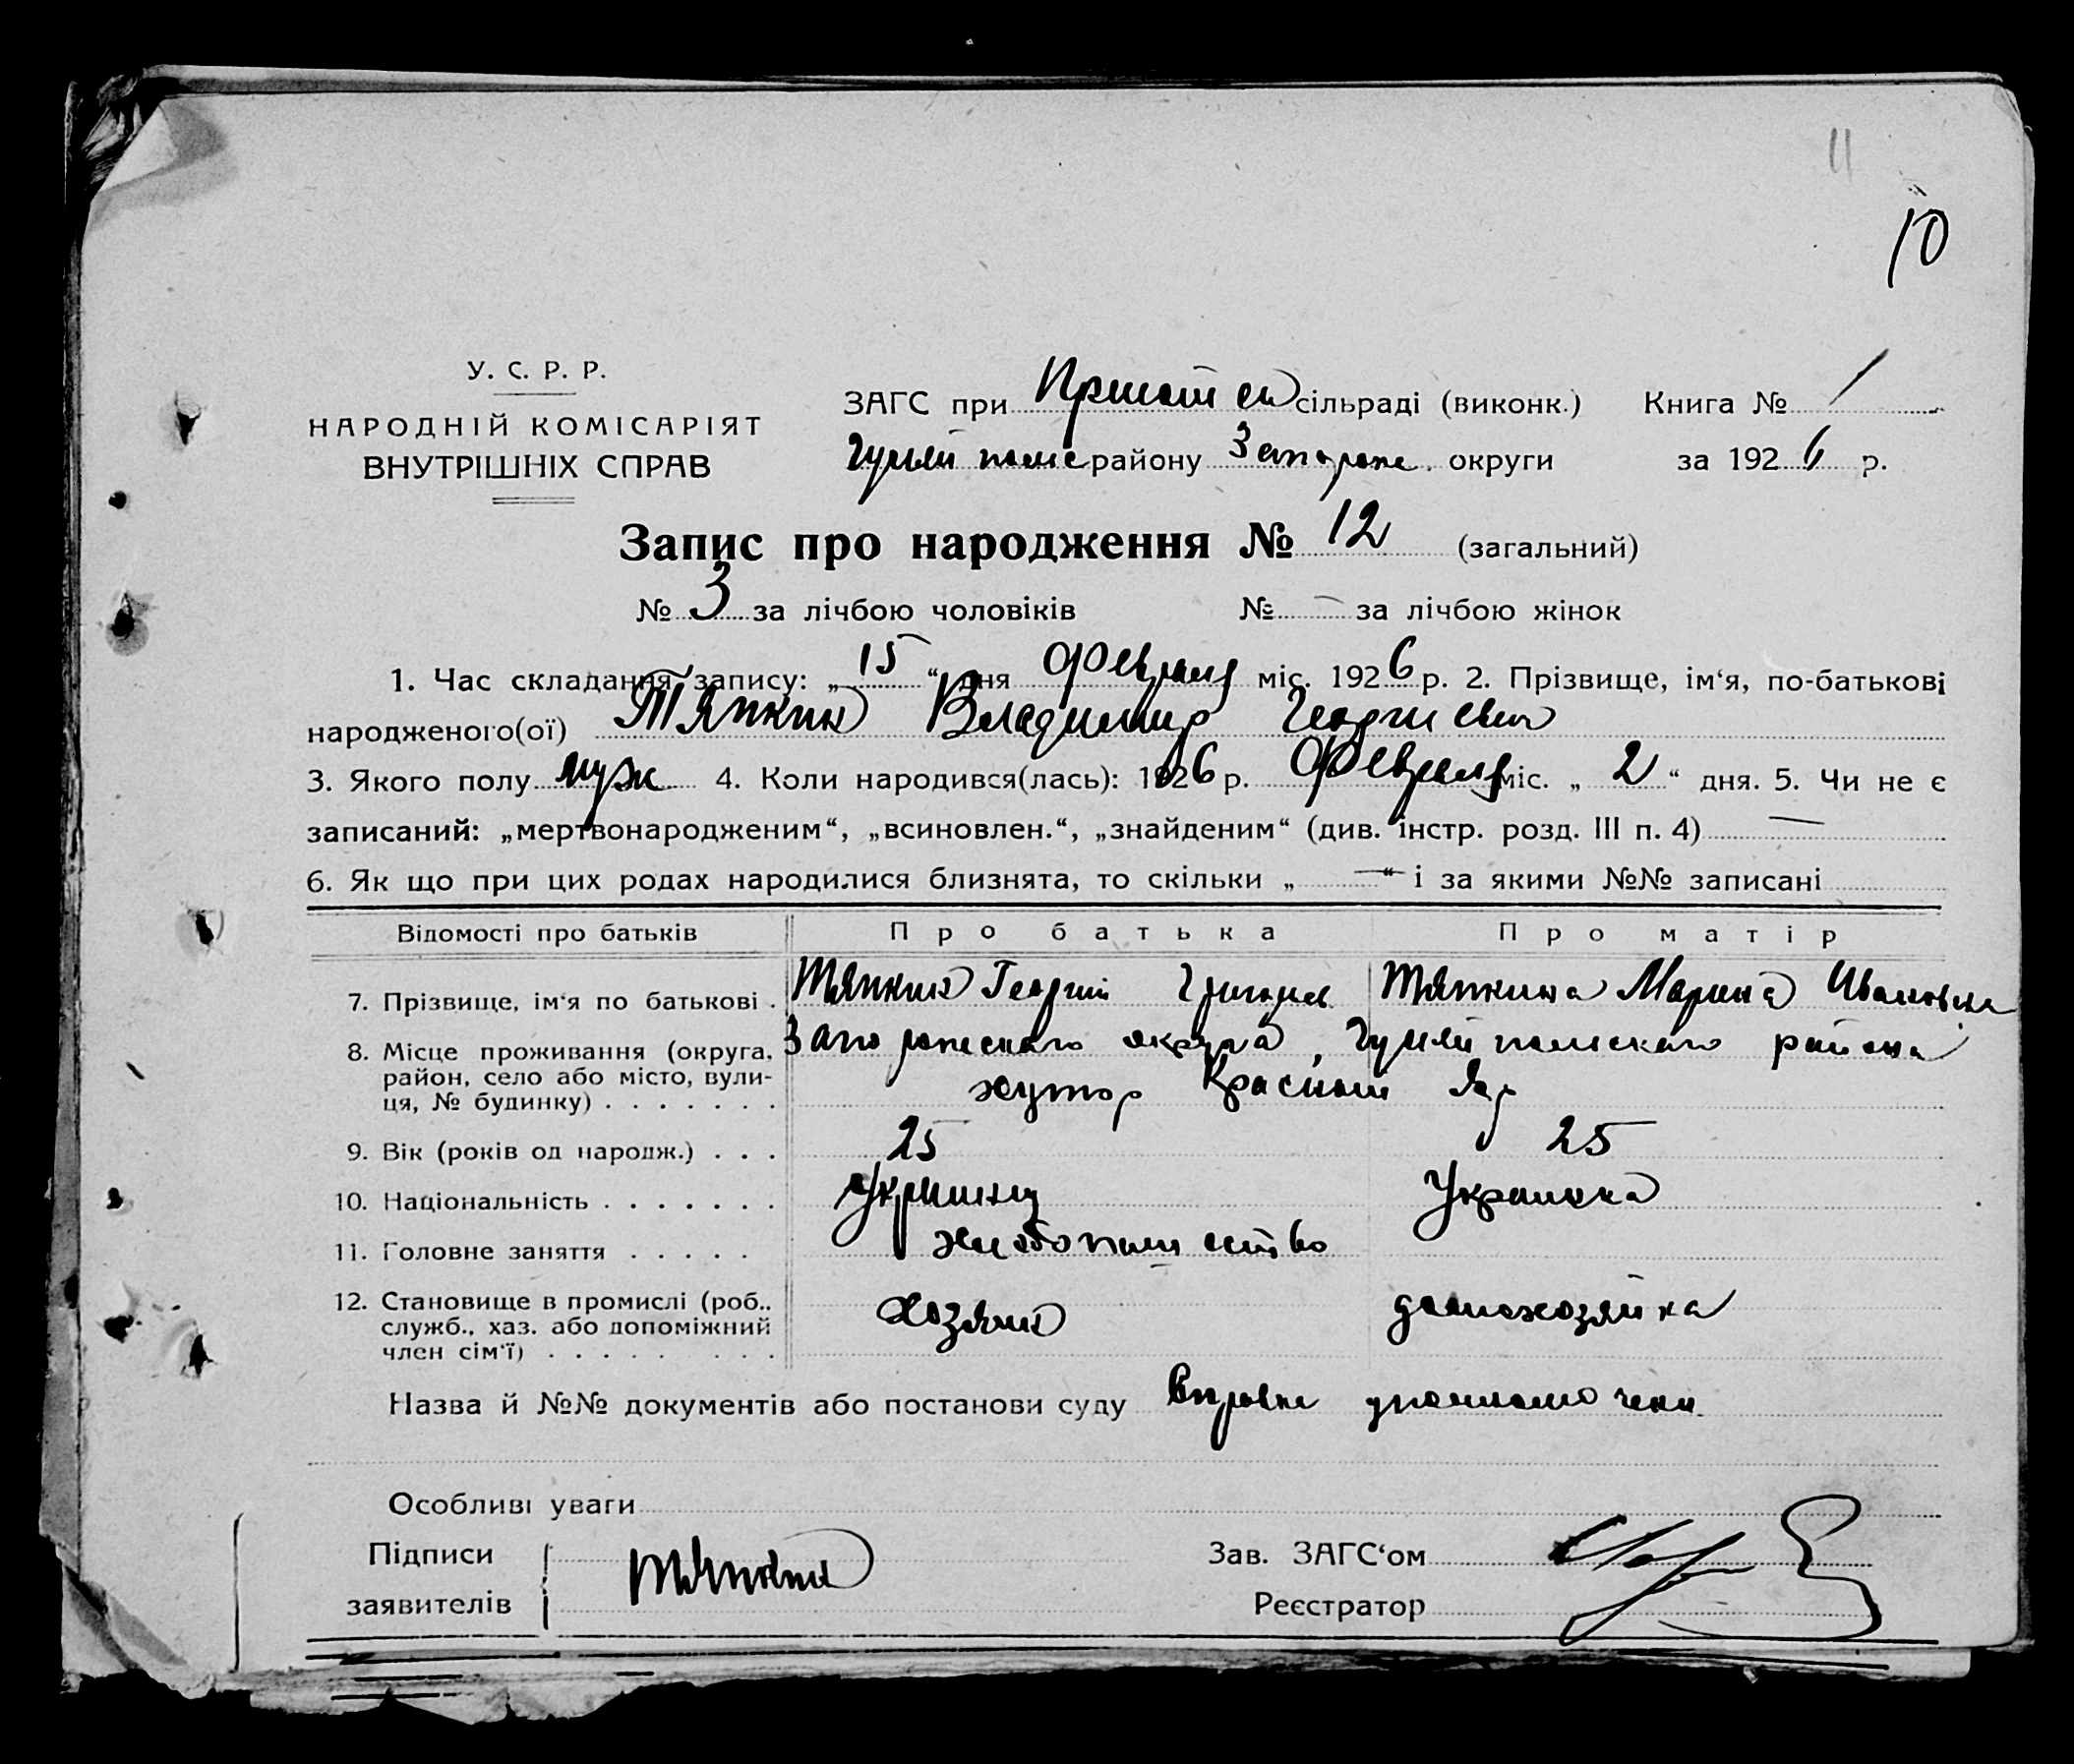 11
10
У. С. Р. Р.
НАРОДНІЙ КОМІСАРІЯТ
ВНУТРІШНІХ СПРАВ
ЗАГС при сільраді (виконк.) Книга № 1
Гуляйполе району Запорож. округи за 1926 р.
Запис про народження № 12 (загальний)
№ 3 за лічбою чоловіків № — за лічбою жінок
1. Час складання запису: „15“ дня Февраля міс. 1926 р. 2. Прізвище, ім‘я, по-батькові
народженого(ої) Тяпкин Владимир Георгиевич
3. Якого полу муж 4. Коли народився(лась): 1926 р. Февраля міс. „2“ дня. 5. Чи не є
записаний: „мертвонародженим“, „всиновлен.“, „знайденим“ (див. інстр. розд. III п. 4) —
6. Як що при цих родах народилися близнята, то скільки „—“ і за якими №№ записані
Відомості про батьків Про батька Про матір
7. Прізвище, ім‘я по батькові . Тяпкин Георгий Григорьев Тяпкина Марина Ивановна
8. Місце проживання (округа, район, село або місто, вули-ця, № будинку) . . . . . . . Запорожского округа, Гуляйпольского района
хутор Красный Яр
9. Вік (років од народж.) . . . 25 25
10. Національність . . . . . . . Украинец Украинка
11. Головне заняття . . . . . хлебопашество
12. Становище в промислі (роб., служб., хаз. або допоміжний член сім‘ї) . . . . . . . . Хозяин домохозяйка
Назва й №№ документів або постанови суду
Особливі уваги
Підписи заявителів Тяпкин
Зав. ЗАГС‘ом
Реєстратор